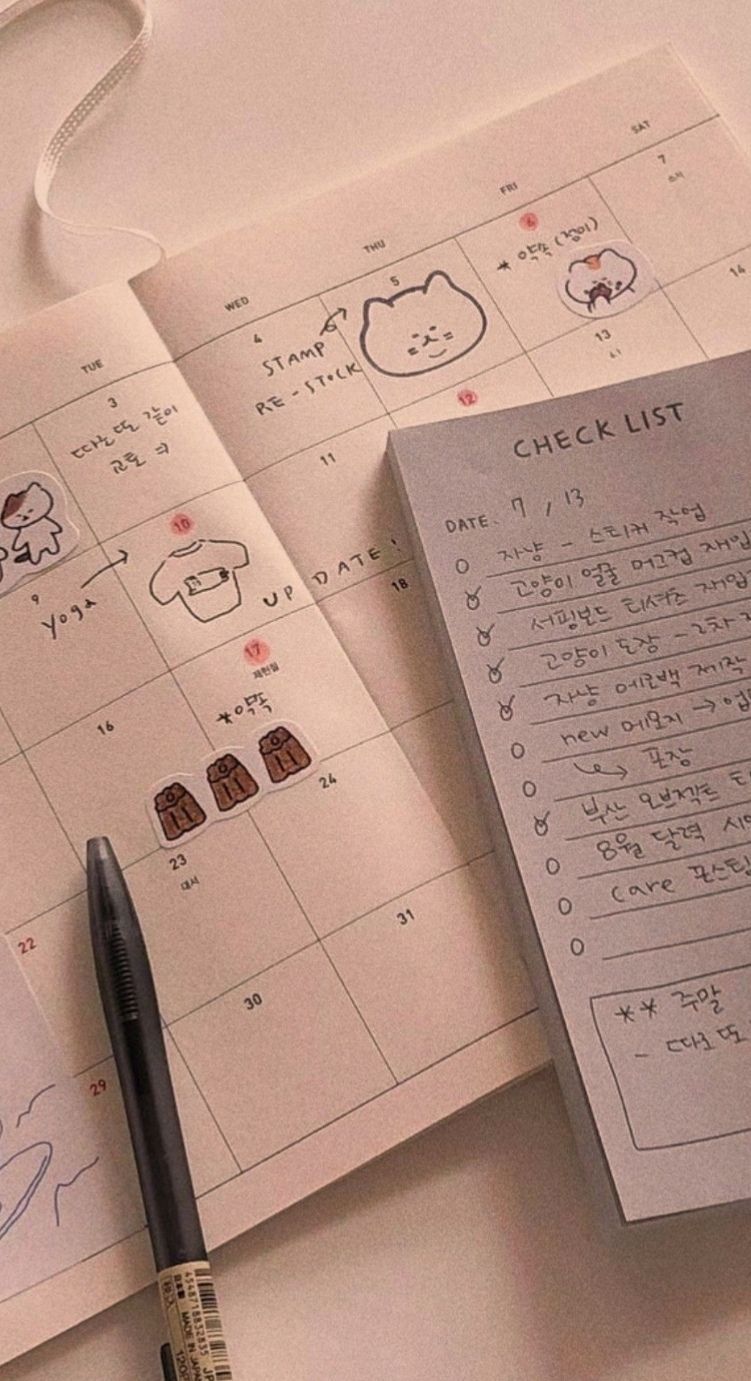 SAT
FRI
THU
WED
TUE
7
소서
6
* 약속 (정이)
5
4
STAMP
RE-STOCK
3
따로 또 같이
교토 ⇒
14
13
초복
12
11
10
9
yoga →
UP DATE!
18
17
제헌절
*약속
16
24
23
대서
22
31
30
29
CHECK LIST
DATE. 7 / 13
자냥 - 스티커 작업
고양이 얼굴 머그컵 재입
서핑보드 티셔츠 재입
고양이 도장 - 2차
자냥 에코백 제작
new 메모지 → 업
↳ 포장
부산 오브젝트
8월 달력 시
care 포스팅
** 주말
- 따로 또
4548718832835
日本製
MADE IN JAPAN